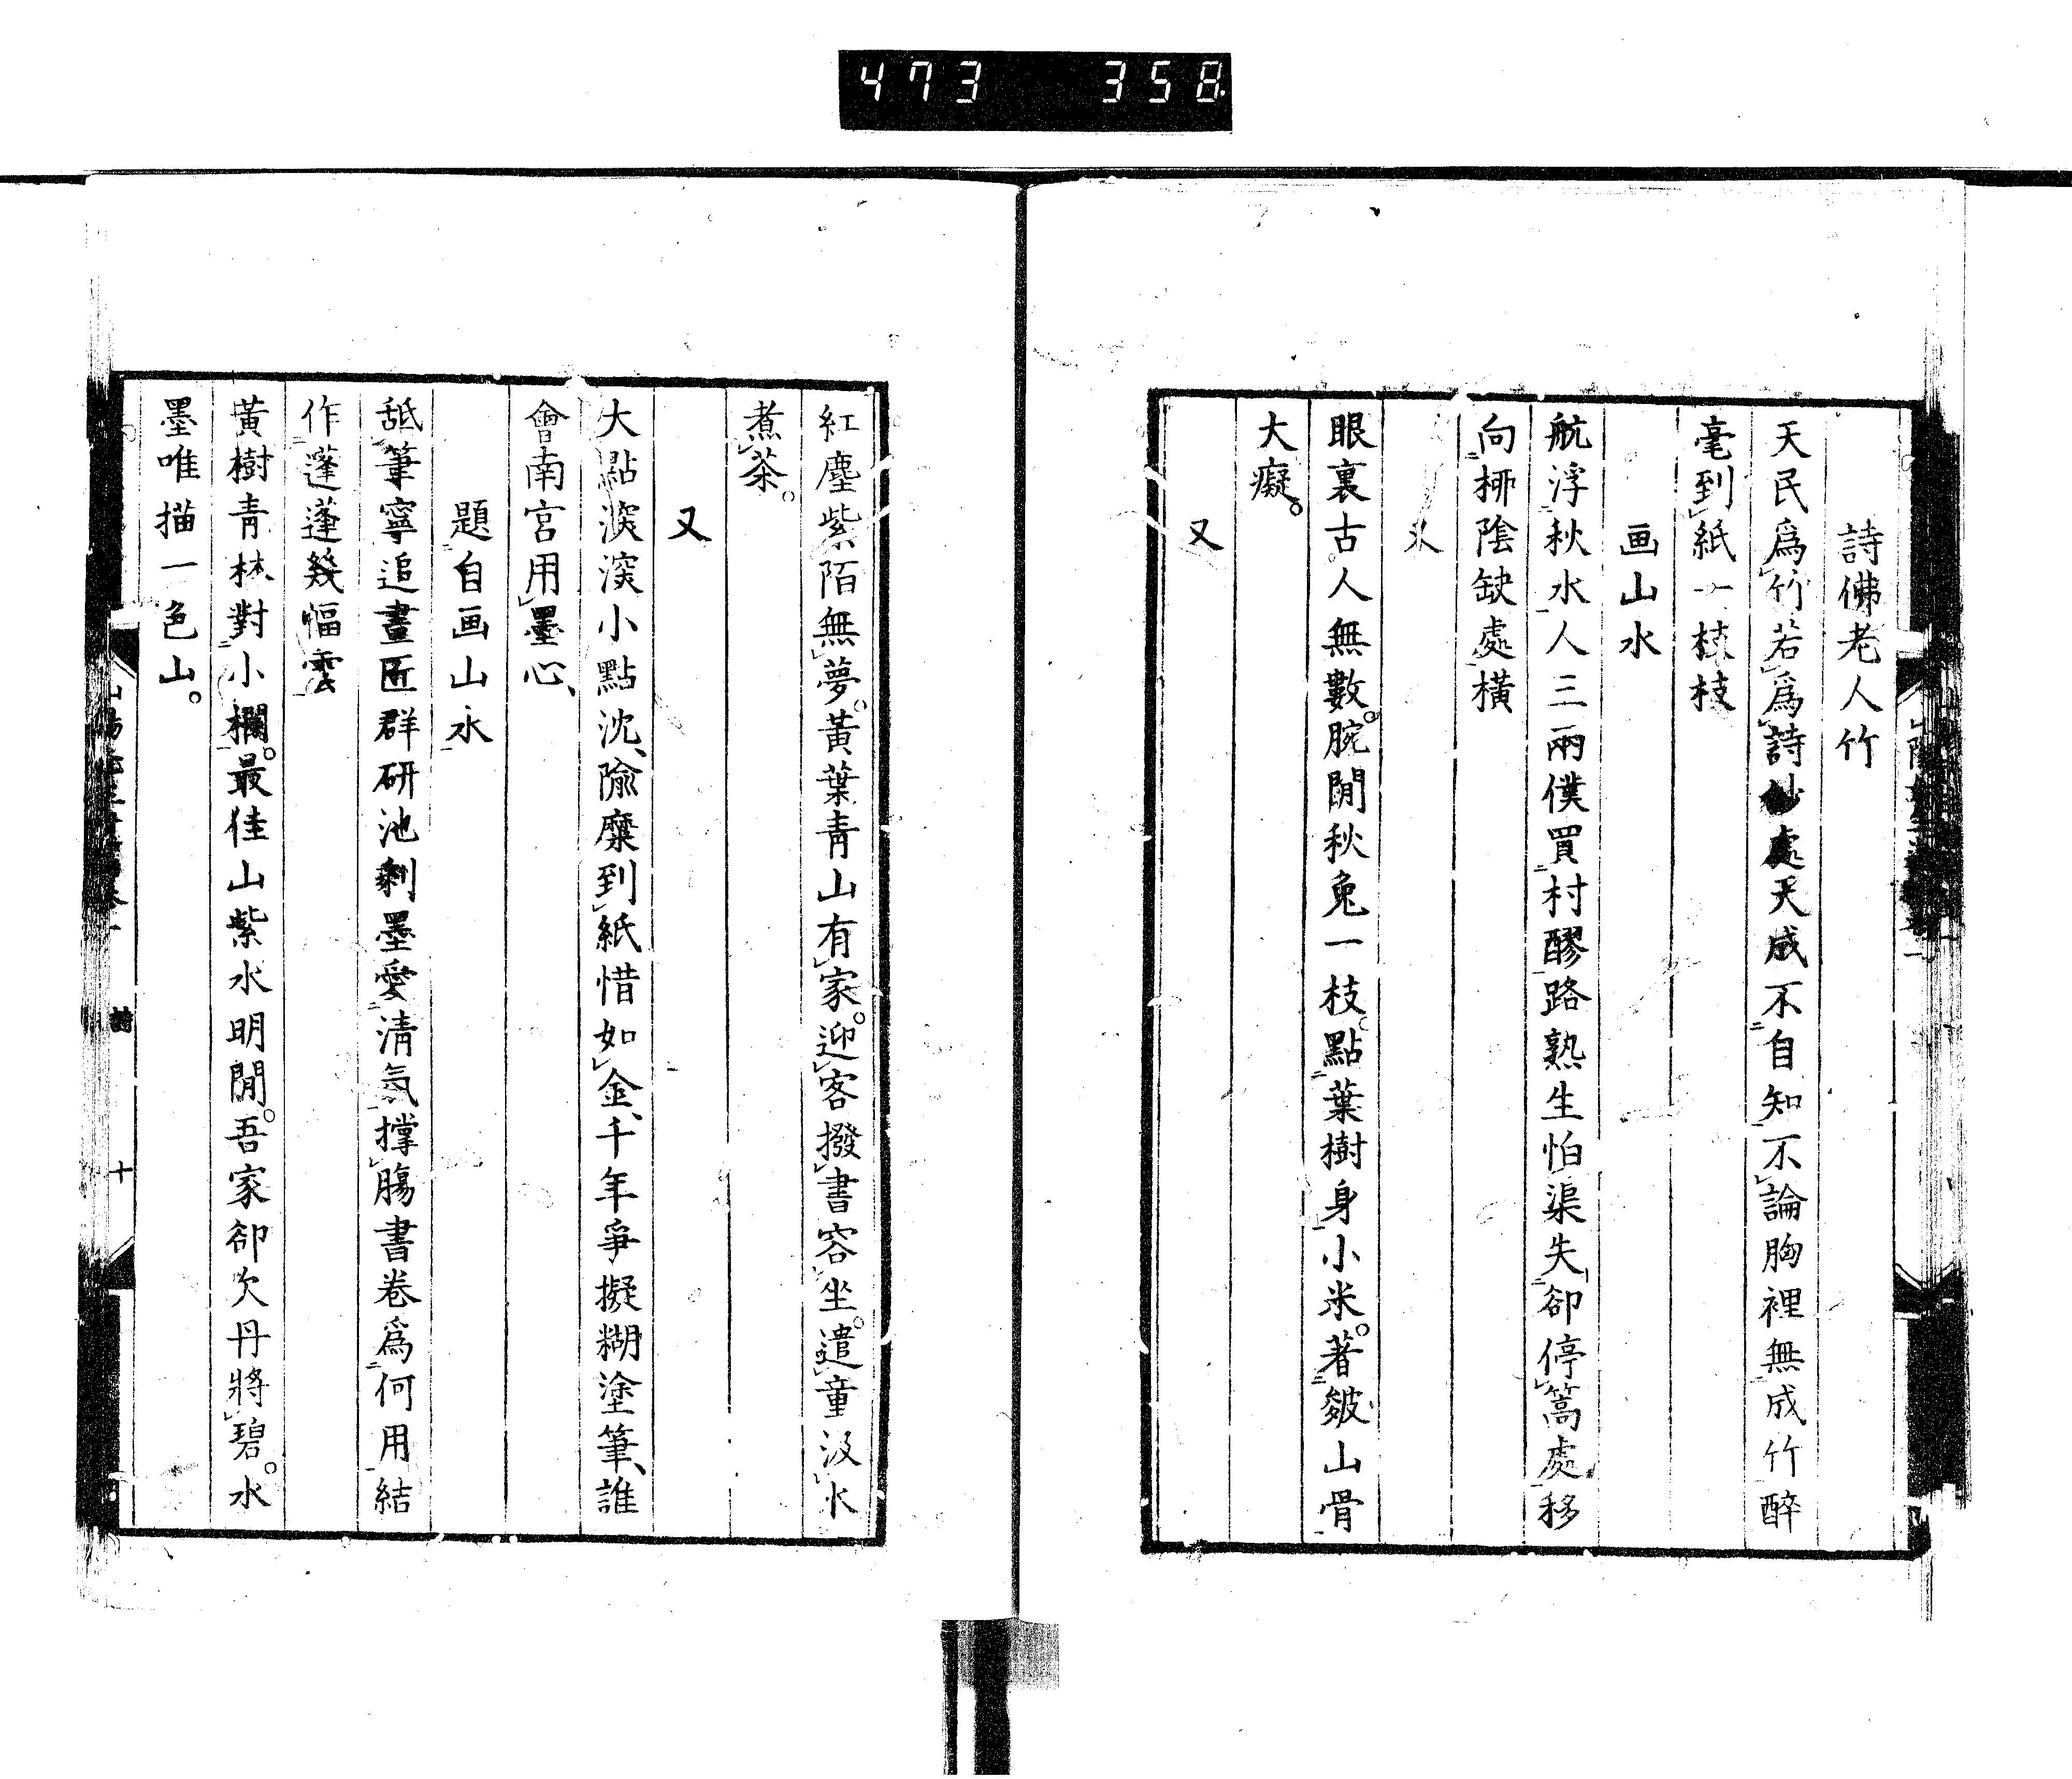 473 358
詩佛老人竹
天民爲竹若爲詩妙處天成不自知不論胸裡無成竹醉
毫到紙一枝枝
画山水
航浮秋水人三兩僕買村醪路熟生怕渠失卻停篙處移
向栁陰缺處橫
又
眼裏古人無數。腕閒秋兔一枝。點葉樹身小米。著皴山骨
大癡。
又
紅塵紫陌無夢。黃葉青山有家。迎客撥書容坐。遣童汲水
煮茶。
又
大點淡淡小點沈、隃糜到紙惜如金、千年爭擬糊塗筆、誰
會南宮用墨心、
題自画山水
舐筆寧追畫匠群研池剩墨愛清氣撑腸書卷爲何用結
作蓬蓬幾幅雲
黃樹青林對小欄。最佳山紫水明閒。吾家卻欠丹將碧。水
墨唯描一色山。
詩
十